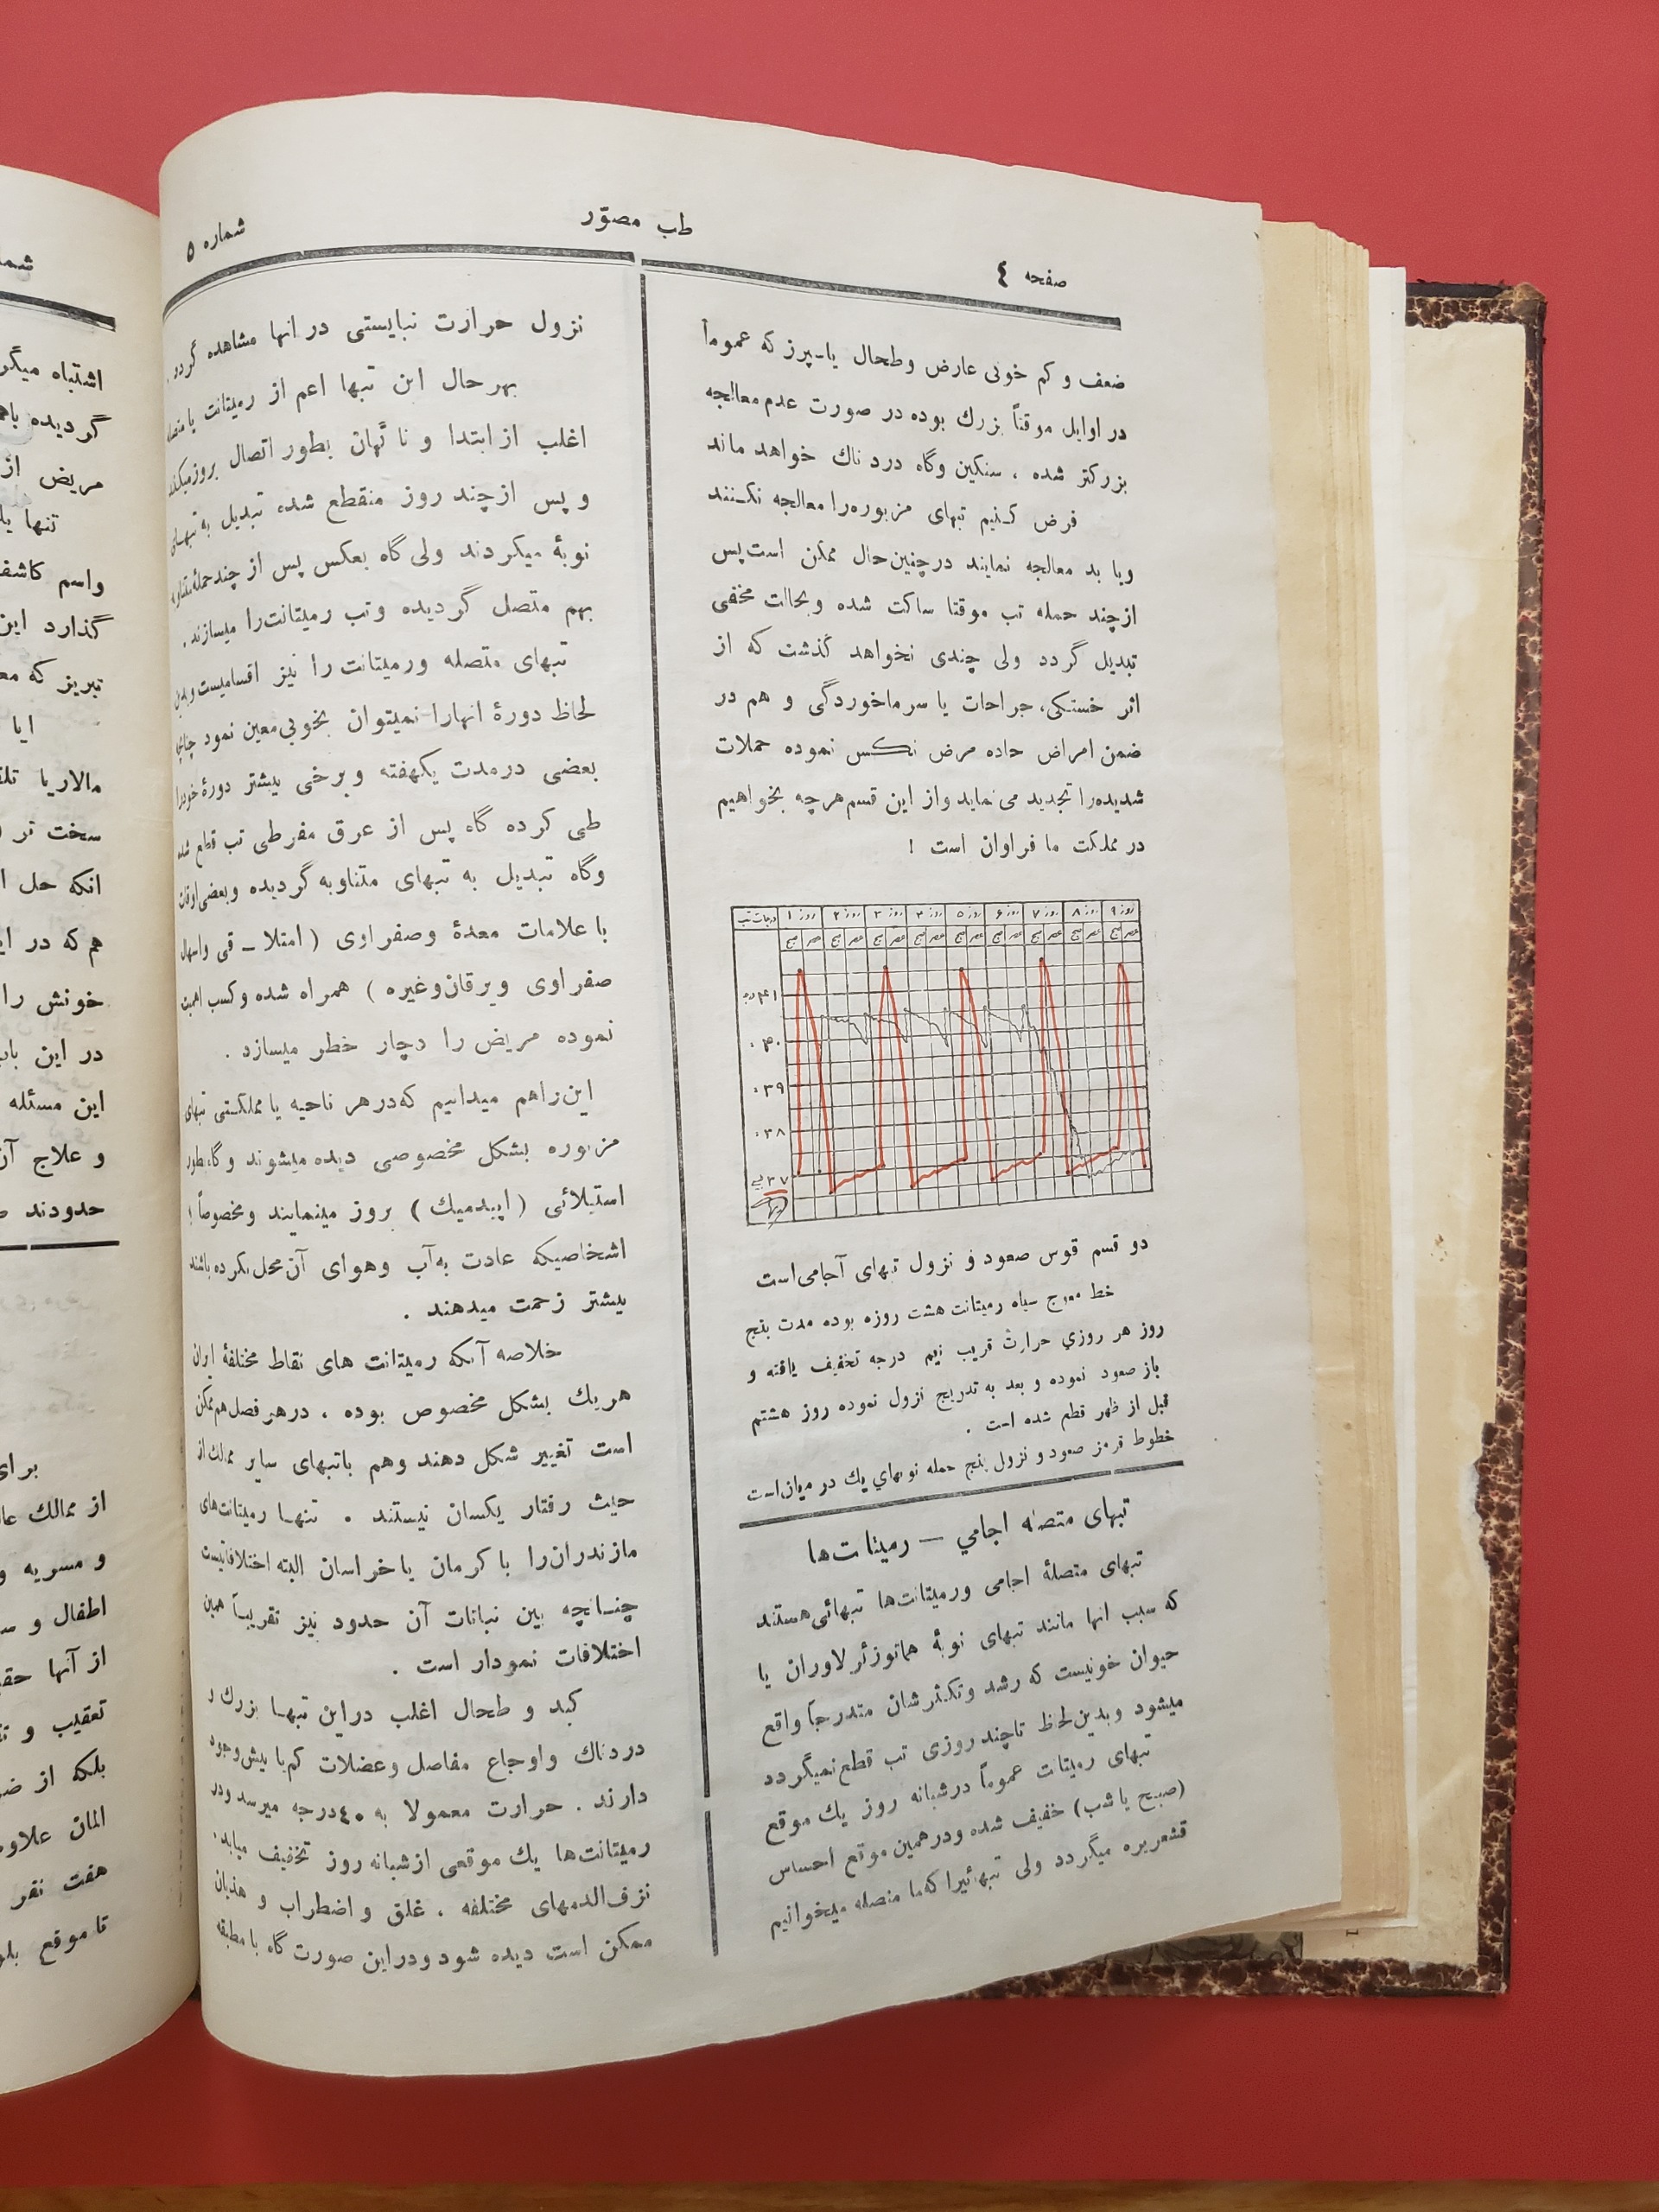 صفحه ٤
طب مصوّر
شماره ٥
ضعف و کم خونی عارض وطحال یا-پرز که عموماً
در اوایل موقتاً بزرك بوده در صورت عدم معالجه
بزرکتر شده ، سنکین وگاه درد ناك خواهد ماند
فرض کـنیم تبهای مزبوره‌را معالجه نکـنند
ویا بد معالجه نمایند درچنین‌حال ممکن است‌پس
ازچند حمله تب موقتا ساکت شده و بحالت مخفی
تبدیل گردد ولی چندی نخواهد گذشت که از
اثر خستکی، جراحات یا سرماخوردگی و هم در
ضمن امراض حاده مرض نکس نموده حملات
شدیده‌را تجدید می نماید واز این قسم‌هرچه بخواهیم
در مملکت ما فراوان است !
درجات تب روز ۱ روز ۲ روز ۳ روز ۴ روز ۵ روز ۶ روز ۷ روز ۸ روز ۹
صبح عصر صبح عصر صبح عصر صبح عصر صبح عصر صبح عصر صبح عصر صبح عصر صبح عصر
۴۱
۴۰
۳۹
۳۸
۳۷
دو قسم قوس صعود و نزول تبهای آجامی‌است
خط معوج سیاه رمیتانت هشت روزه بوده مدت پنج
روز هر روزي حرارت قریب نیم درجه تخفیف یافته و
باز صعود نموده و بعد به تدریج نزول نموده روز هشتم
قبل از ظهر قطع شده است .
خطوط قرمز صعود و نزول پنج حمله نوبهاي یك در میان‌است
تبهای متصله اجامي — رمیتات‌ها
تبهای متصلهٔ اجامی ورمیتانت‌ها تبهائی‌هستند
که سبب انها مانند تبهای نوبهٔ هماتوزئر لاوران یا
حیوان خونیست که رشد وتکـثرشان متدرجاً واقع
میشود وبدین‌لحاظ تاچند روزی تب قطع‌نمیگردد
تبهای رمیتات عموماً درشبانه روز یك موقع
(صبح یا شب) خفیف شده ودرهمین موقع احساس
قشعریره میگردد ولی تبهائیرا که‌ما متصله میخوانیم
نزول حرارت نبایستی در انها مشاهده گردد .
بهرحال این تبها اعم از رمیتانت یا متصله
اغلب ازابتدا و نا گهان بطور اتصال بروزمیکنند
و پس ازچند روز منقطع شده تبدیل به تبهـای
نوبهٔ میکردند ولی گاه بعکس پس از چندحمله‌متناوبه
بهم متصل گردیده وتب رمیتانت‌را میسازند .
تبهای متصله ورمیتانت را نیز اقسامیست وبدین
لحاظ دورهٔ انهارا نمیتوان بخوبی‌معین نمود چنانچه
بعضی درمدت یکهفته وبرخی بیشتر دورهٔ خودرا
طی کرده گاه پس از عرق مفرطی تب قطع شده
وگاه تبدیل به تبهای متناوبه گردیده وبعضی‌اوقات
با علامات معدهٔ وصفراوی ( امتلا ـ قی واسهال
صفراوی ویرقان‌وغیره ) همراه شده وکسب اهمیت
نموده مریض را دچار خطر میسازد .
این‌راهم میدانیم که‌درهر ناحیه یا مملکـتی تبهای
مزبوره بشکل مخصوصی دیده‌میشوند وگاه‌بطور
استیلائی (اپیدمیك) بروز مینمایند ومخصوصاً !
اشخاصیکه عادت به‌آب وهوای آن‌محل‌نکرده‌باشند
بیشتر زحمت میدهند .
خلاصه آنکه رمیتانت های نقاط مختلفهٔ ایران
هریك بشکل مخصوص بوده ، درهرفصل‌هم‌ممکن
است تغییر شکل دهند وهم باتبهای سایر ممالك‌از
حیث رفتار یکسان نیستند . تنهـا رمیتانت‌های
مازندران‌را با کرمان یاخراسان البته اختلافاتیست
چنـانچه بین نباتات آن حدود نیز تقریبـاً همین
اختلافات نمودار است .
کبد و طحال اغلب دراین تبهـا بزرك و
دردناك و اوجاع مفاصل وعضلات کم‌با بیش‌وجود
دارند . حرارت معمولا به ٤٠درجه میرسد ودر
رمیتانت‌ها یك موقعی ازشبانه روز تخفیف میابد.
نزف‌الدمهای مختلفه ، غلق و اضطراب و هذیان
ممکن است دیده شود ودراین صورت گاه با مطبقه
شما
اشتباه میگر
گردیده باهم
مریض از
تنها یا
واسم کاشف
گذارد این
تبریز که مع
ایا
مالاریا تلق
سخت تر
انکه حل ا
هم که در ای
خونش را
در این باب
این مسئله
و علاج آن
حدودند
برای
از ممالك عا
و مسریه و
اطفال و
از آنها حق
تعقیب و
بلکه از ضر
المان علاو
هفت نفر
تا موقع بلو